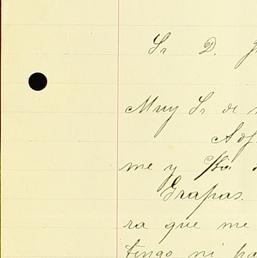 Sr D.
Muy Sr de
me y
Grapas.
ra que me
tengo ni